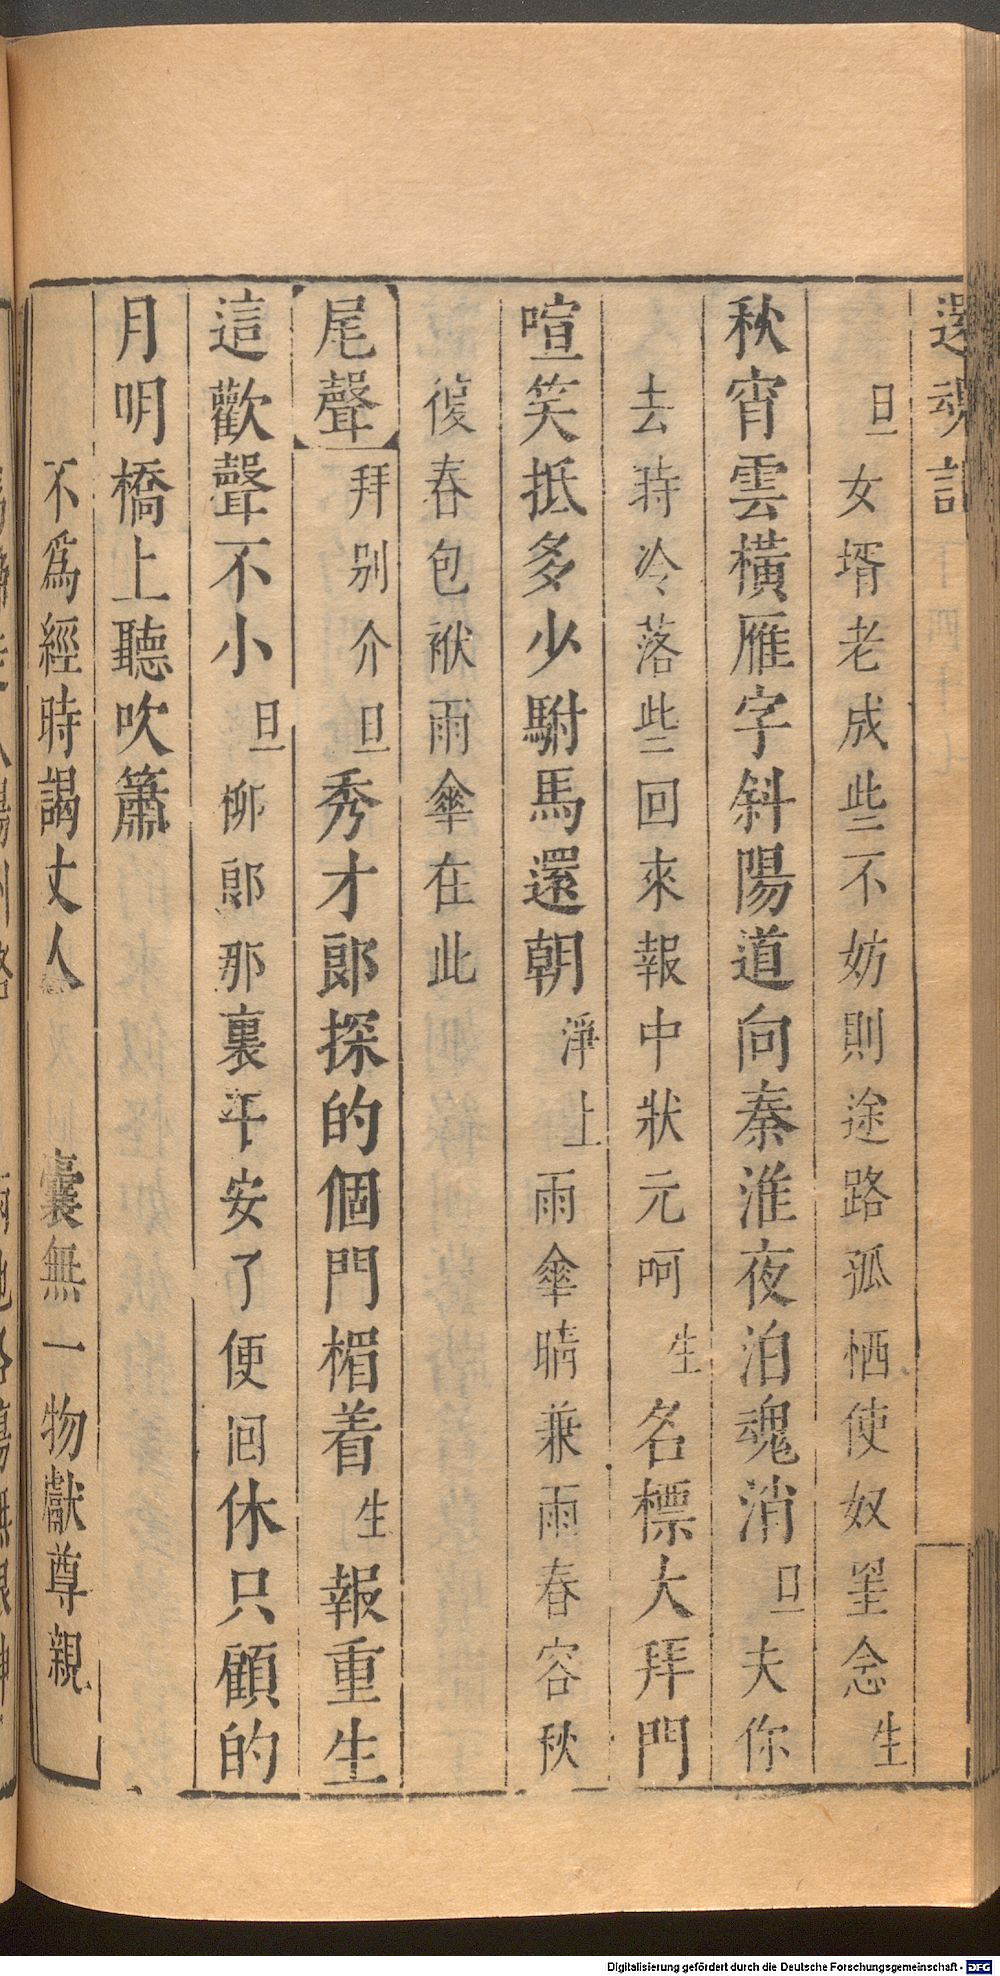 還魂記
旦女壻老成些不妨則途路孤栖使奴罣念生
秋宵雲橫雁字斜陽道向秦淮夜泊魂消旦夫你
去時冷落些回來報中狀元呵生名標大拜門
喧笑抵多少駙馬還朝淨上雨傘晴兼雨春容秋
復春包袱雨傘在此
尾聲拜别介旦秀才郎探的個門楣着生報重生
這歡聲不小旦柳郎那裏平安了便回休只顧的
月明橋上聽吹簫
不爲經時謁丈人 囊無一物獻尊親
Digitalisierung gefördert durch die Deutsche Forschungsgemeinschaft - DFG